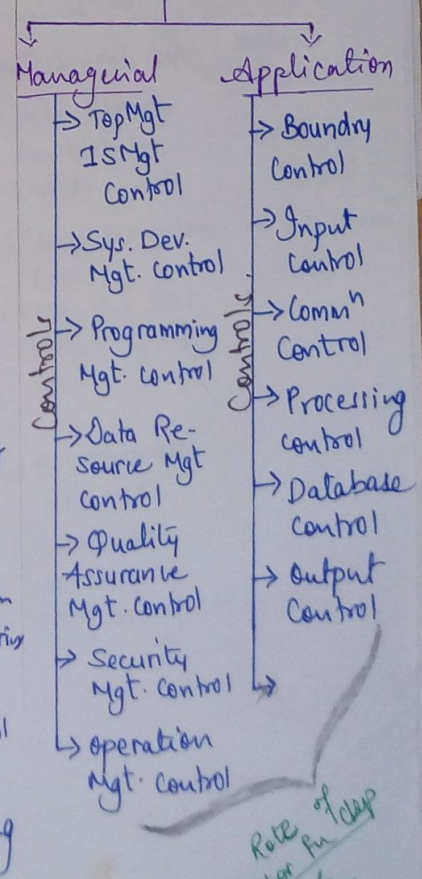 Managerial
Application
Controls
→ Top Mgt
ISMgt
Control
→ Sys. Dev.
Mgt. Control
→ Programming
Mgt. Control
→ Data Re-
source Mgt
Control
→ Quality
Assurance
Mgt. Control
→ Security
Mgt. Control
→ Operation
Mgt. Control
Controls
→ Boundry
Control
→ Input
Control
→ Commⁿ
Control
→ Processing
Control
→ Database
Control
→ Output
Control
→
Rote of